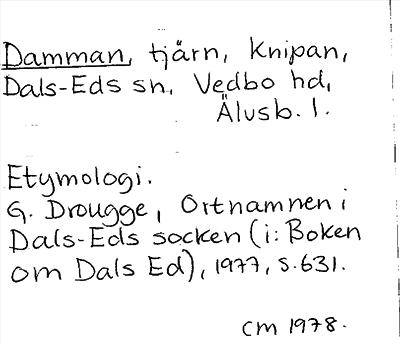 Damman, tjärn, Knipan,
Dals-Eds sn, Vedbo hd,
Älvsb. l.
Etymologi.
G. Drougge, Ortnamnen i
Dals-Eds socken (i: Boken
om Dals Ed), 1977, s. 631.
CM 1978.